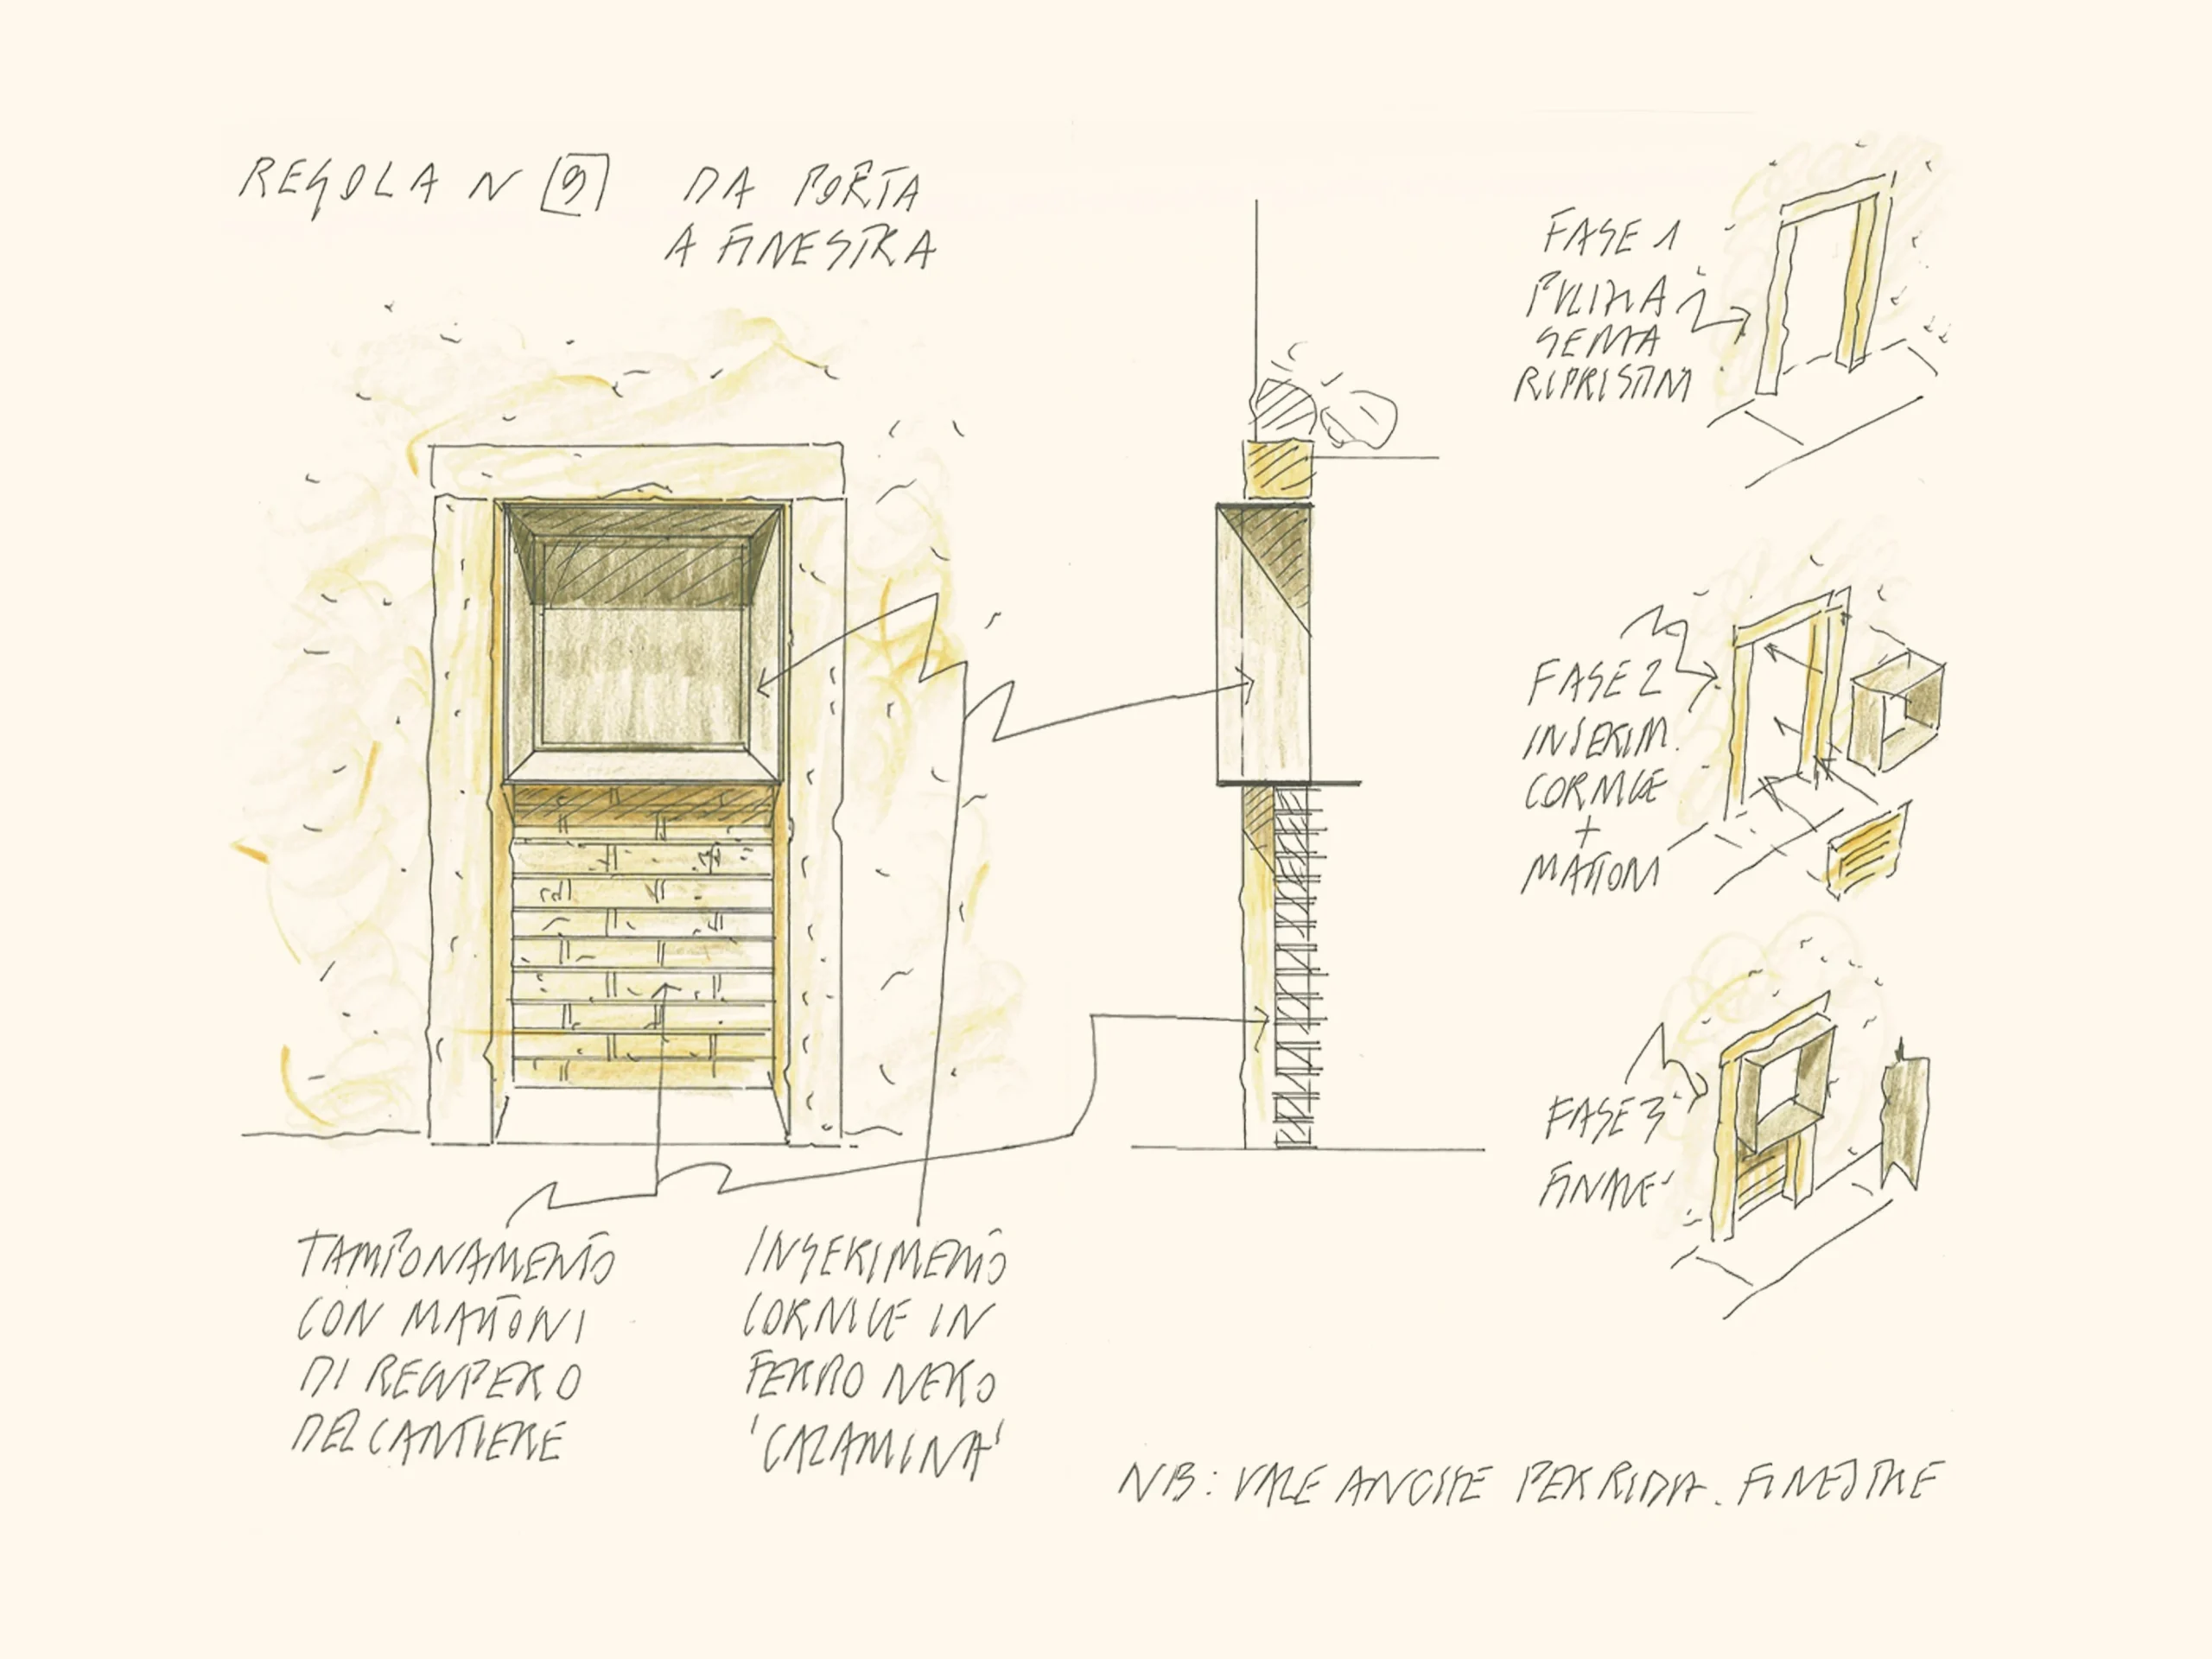 REGOLA N 9
DA PORTA
A FINESTRA
FASE 1
PULIZIA
SENZA
RIPRISTINI
FASE 2
INSERIM.
CORNICE
+
MATTONI
FASE 3
FINALE
TAMPONAMENTO
CON MATTONI
DI RECUPERO
DEL CANTIERE
INSERIMENTO
CORNICE IN
FERRO NERO
'CALAMINA'
NB: VALE ANCHE PER RIDU. FINESTRE